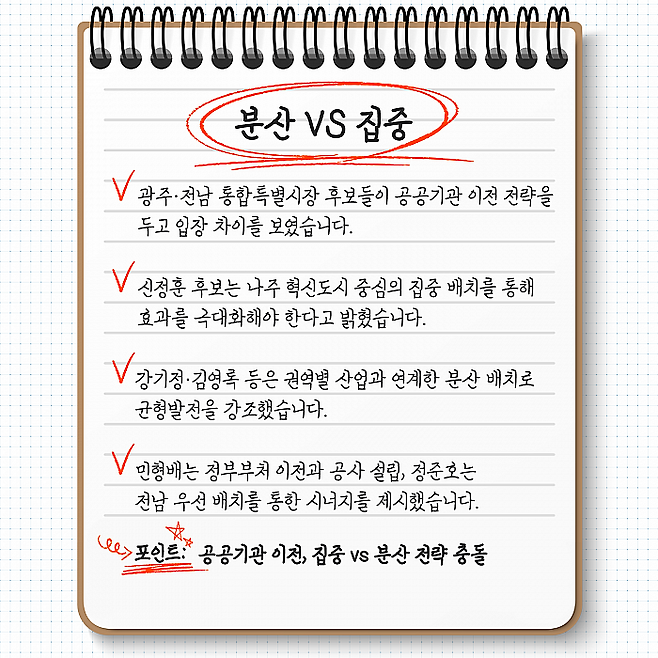 분산 VS 집중
광주·전남 통합특별시장 후보들이 공공기관 이전 전략을
두고 입장 차이를 보였습니다.
신정훈 후보는 나주 혁신도시 중심의 집중 배치를 통해
효과를 극대화해야 한다고 밝혔습니다.
강기정·김영록 등은 권역별 산업과 연계한 분산 배치로
균형발전을 강조했습니다.
민형배는 정부부처 이전과 공사 설립, 정준호는
전남 우선 배치를 통한 시너지를 제시했습니다.
포인트: 공공기관 이전, 집중 vs 분산 전략 충돌